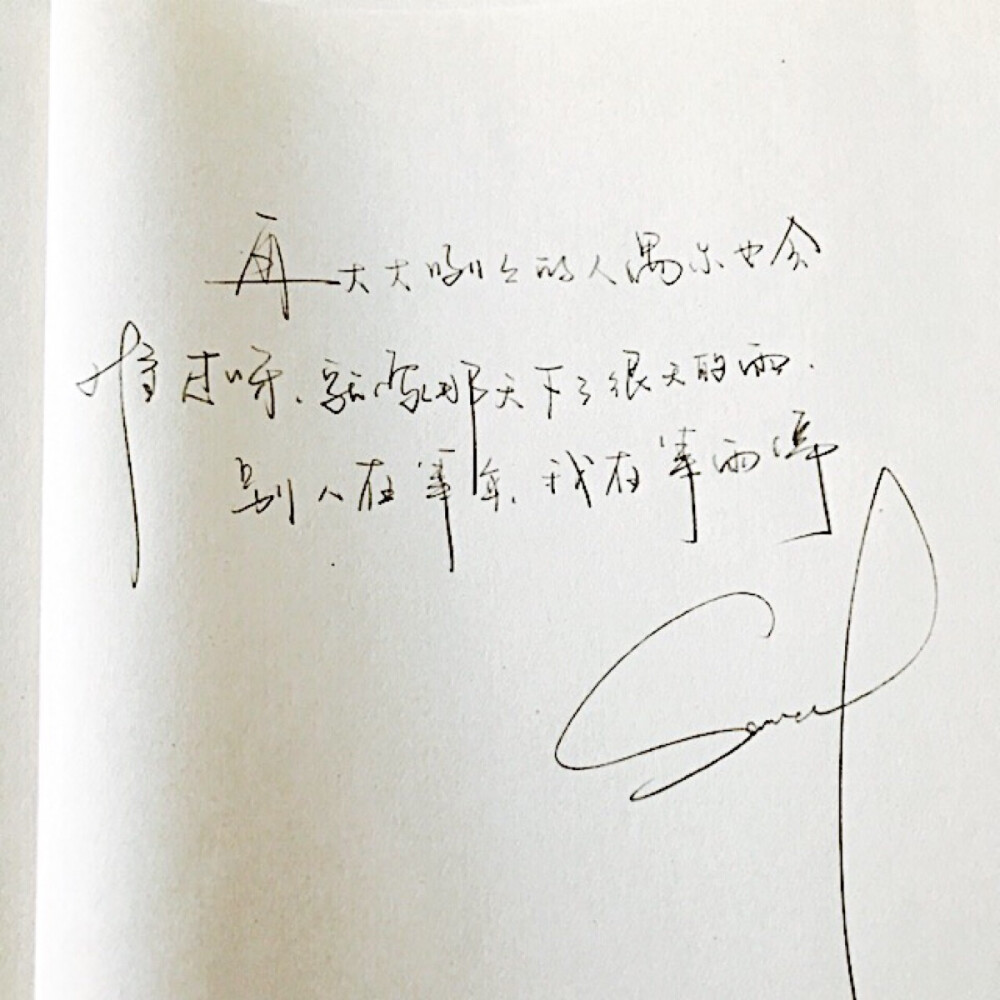 再大大咧咧的人偶尔也会
难过呀.就像那天下了很大的雨.
别人在等伞.我在等雨停